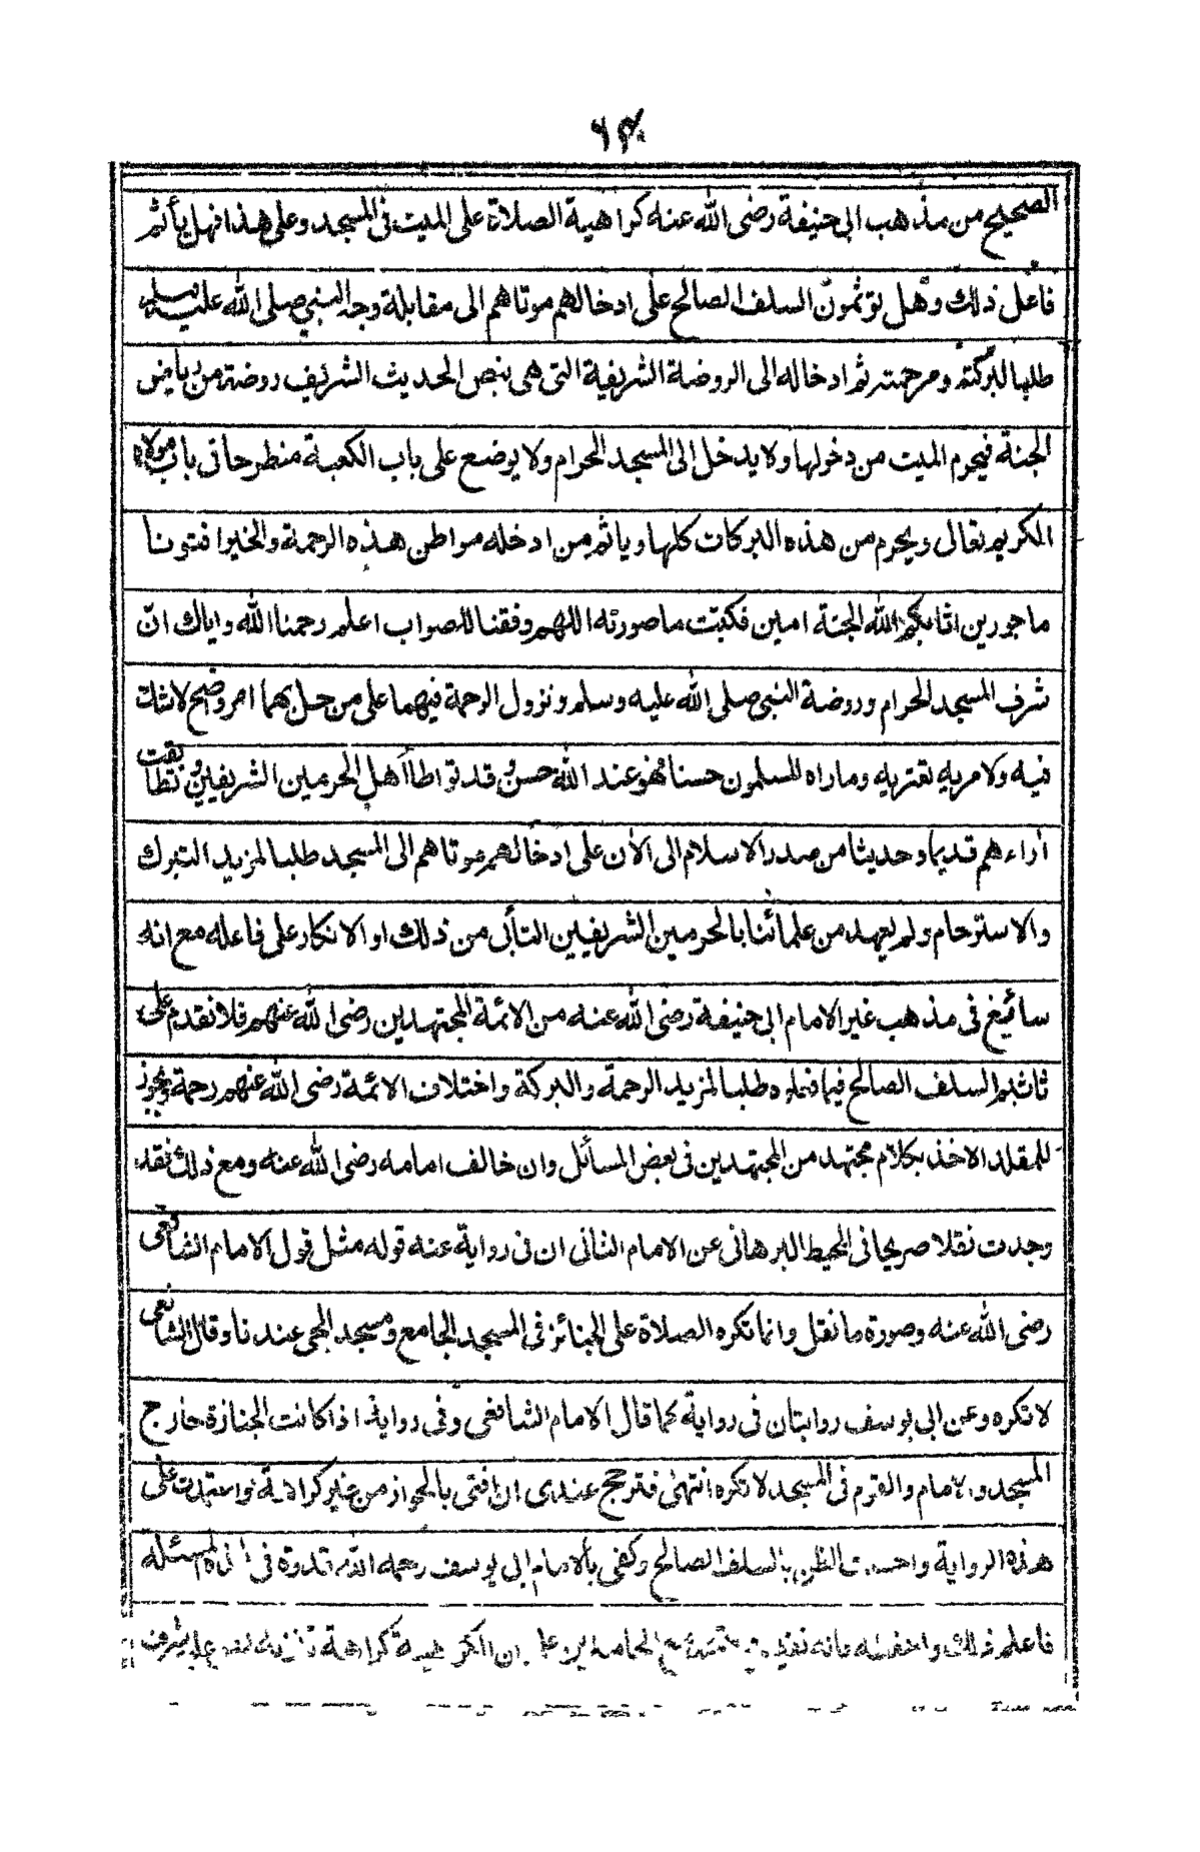 الصحيح من مذهب ابى حنيفة رضى الله عنه كراهية الصلاة على الميت فى المسجد وعلى هذا فهل يأثم
فاعل ذلك وهل تؤثمون السلف الصالح على ادخالهم موتاهم الى مقابلة وجه النبي صلى الله عليه وسلم
طلبا لبركته ومرحمته ثم ادخاله الى الروضة الشريفة التى هى بنص الحديث الشريف روضة من رياض
الجنة فيحرم الميت من دخولها ولا يدخل الى المسجد الحرام ولا يوضع على باب الكعبة منطرحا فى باب مولاه
الكريم تعالى ويحرم من هذه البركات كلها وياثم من ادخله مواطن هذه الرحمة والخير افتونا
ماجورين اثابكم الله الجنة امين فكتبت ما صورته اللهم وفقنا للصواب اعلم رحمنا الله واياك ان
شرف المسجد الحرام وروضة النبى صلى الله عليه وسلم ونزول الرحمة فيهما على من حل بهما امر واضح لا شك
فيه ولا مريه تعتريه وما راه المسلمون حسنا فهو عند الله حسن وقد تواطأ أهل الحرمين الشريفين وتطابقت
أراءهم قديما وحديثا من صدر الاسلام الى الأن على ادخالهم موتاهم الى المسجد طلبا لمزيد التبرك
والاسترحام ولم يعهد من علمائنا بالحرمين الشريفين التأبى من ذلك او الانكار على فاعله مع انه
سائيغ فى مذهب غير الامام ابى حنيفة رضى الله عنه من الائمة المجتهدين رضى الله عنهم فلا نقدم على
تاثيم السلف الصالح فيما فعلوه طلبا لمزيد الرحمة والبركة واختلاف الائمة رضى الله عنهم رحمة ويجوز
للمقلد الاخذ بكلام مجتهد من المجتهدين فى بعض المسائل وان خالف امامه رضى الله عنه ومع ذلك فقد
وجدت نقلا صريحا فى المحيط البرهانى عن الامام الثانى ان فى رواية عنه قوله مثل قول الامام الشافعى
رضى الله عنه وصورة ما نقل وانما تكره الصلاة على الجنائز فى المسجد الجامع ومسجد الحى عندنا وقال الشافعى
لا تكره وعن ابى يوسف روايتان فى رواية كما قال الامام الشافعى وفى رواية اذا كانت الجنازة خارج
المسجد والامام والقوم فى المسجد لا تكره انتهى فترجح عندى ان افتى بالجواز من غير كراهة واعتمدت على
هذه الرواية واحسنت الظن بالسلف الصالح وكفى بالامام ابى يوسف رحمه الله قدوة فى هذه المسئلة
فاعلم ذلك واحفظه فانه